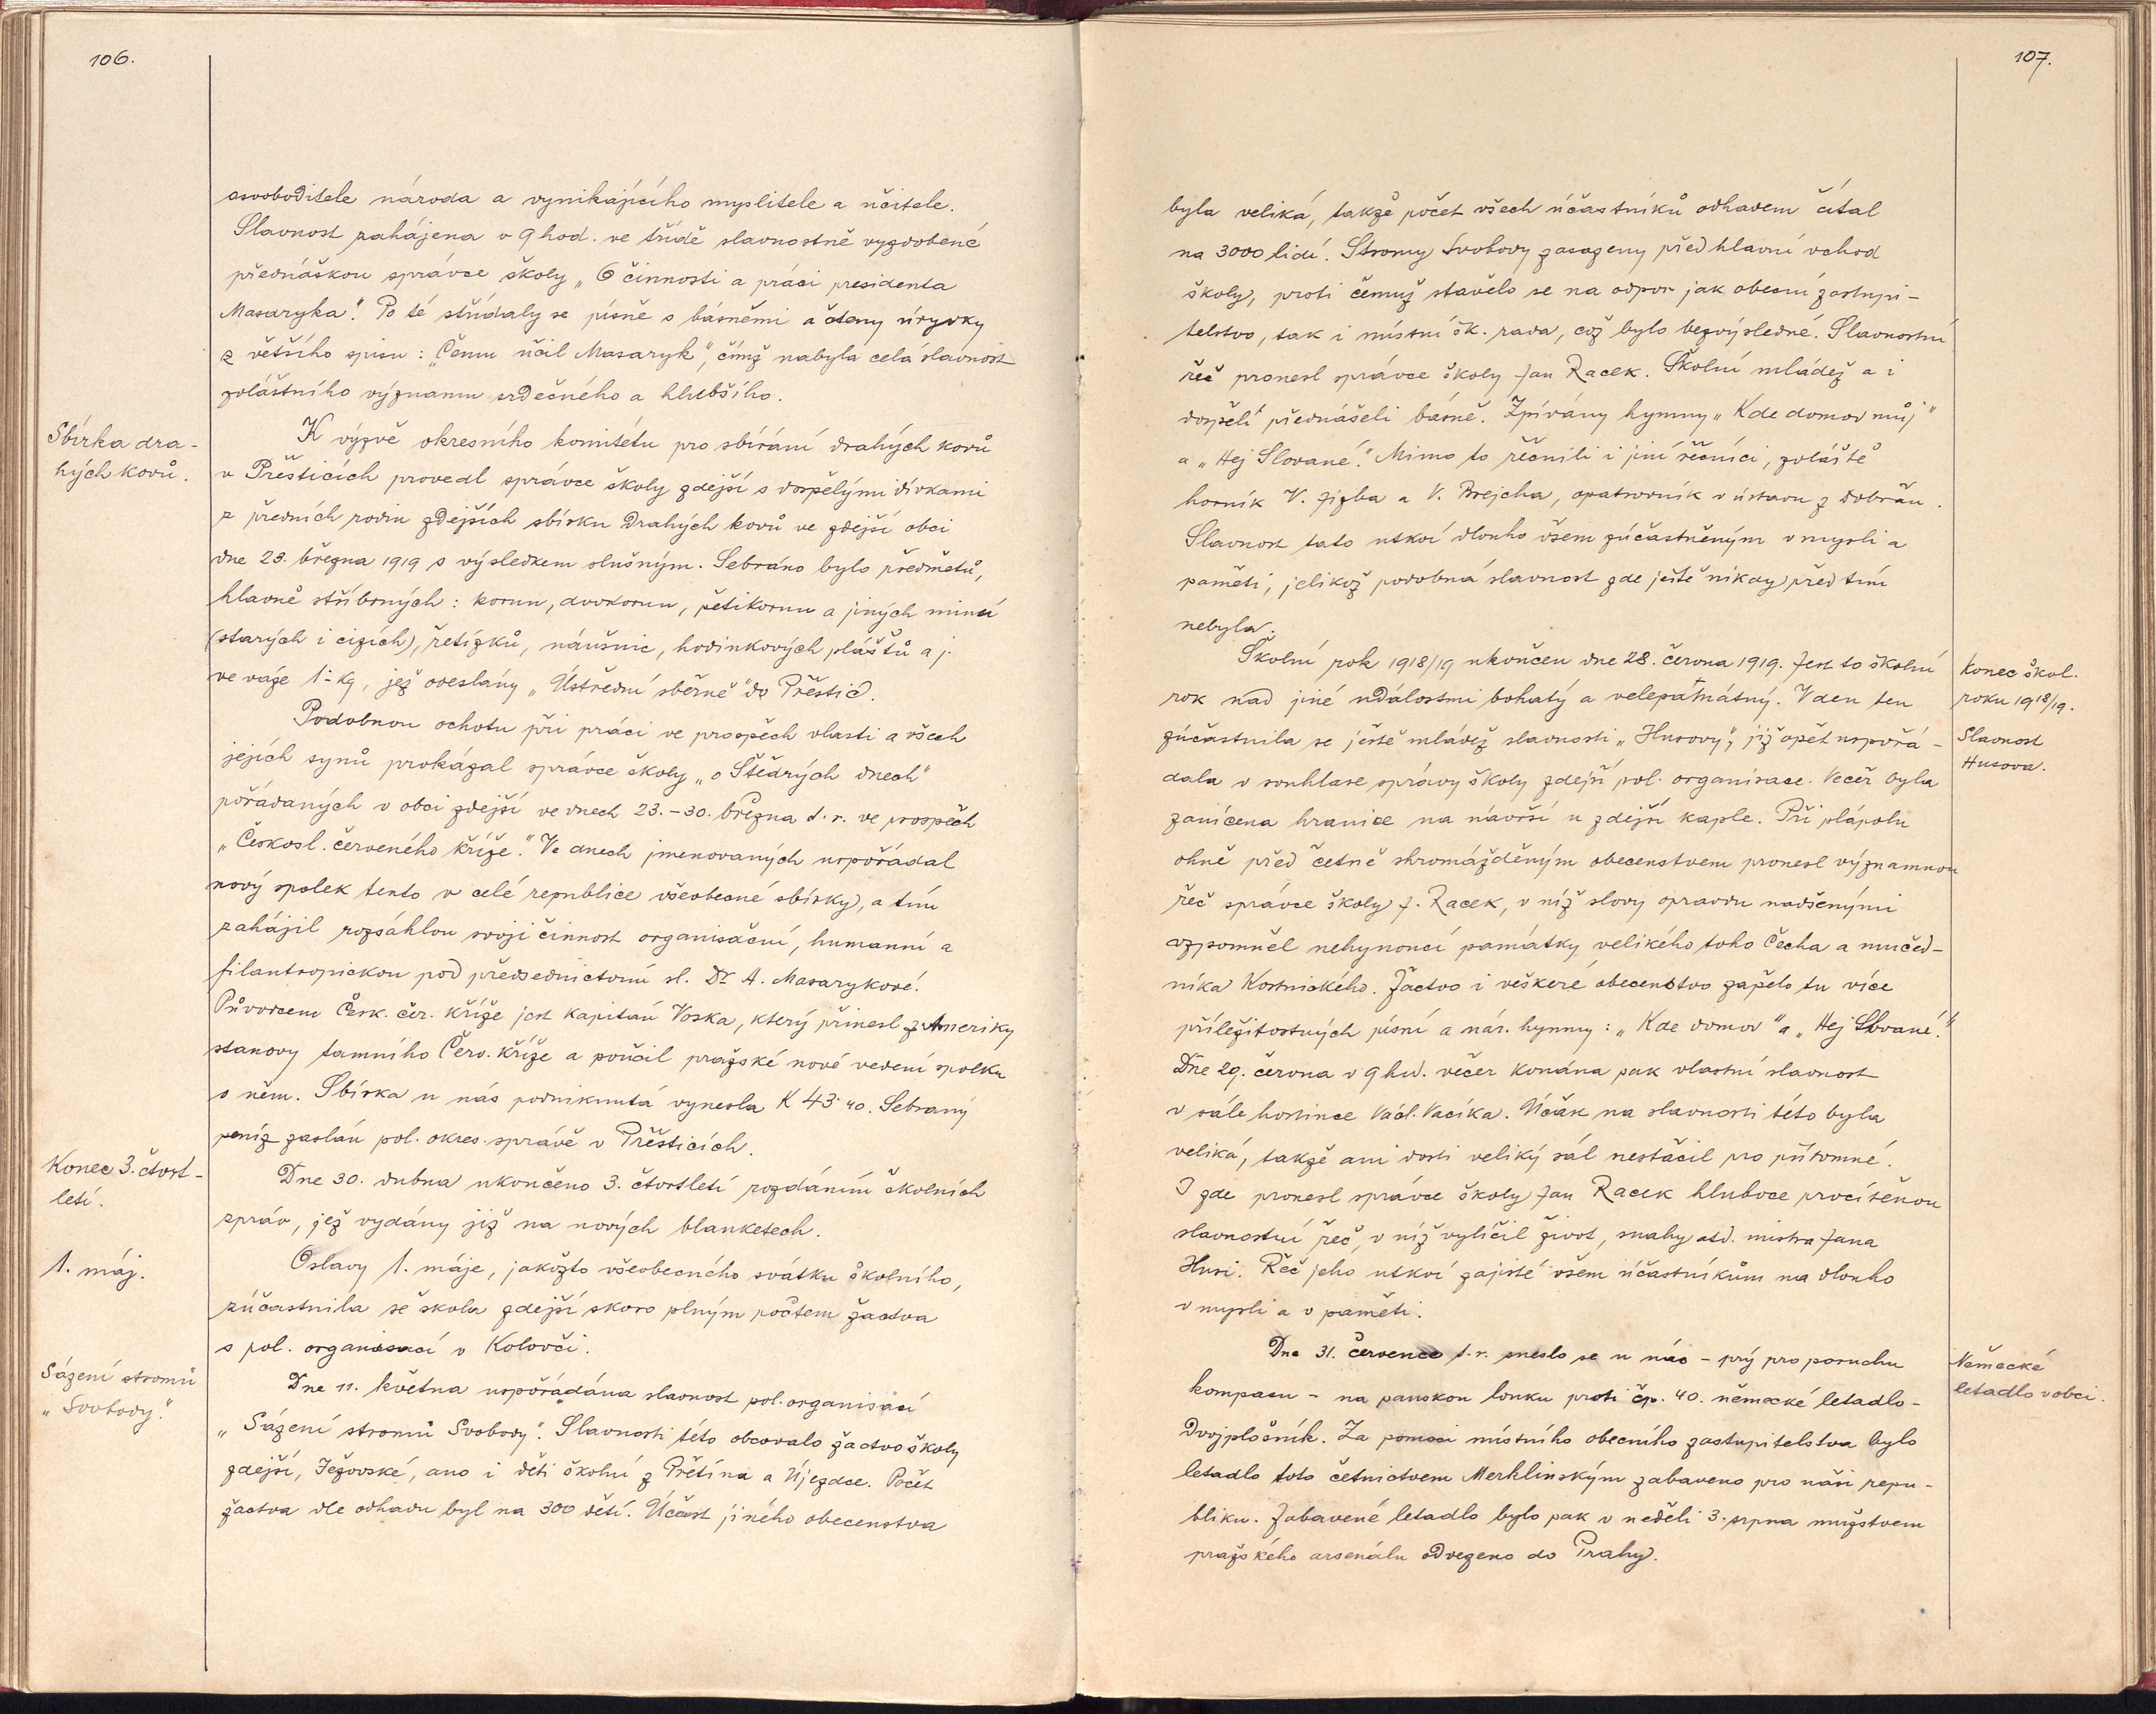 106.
osvoboditele národa a vynikajícího myslitele a učitele.
Slavnost zahájena v 9 hod. ve třídě slavnostně vyzdobené
přednáškou správce školy „O činnosti a práci presidenta
Masaryka“. Po té střídaly se písně s básněmi a čteny úryvky
z většího spisu: „Čemu učil Masaryk“, čímž nabyla celá slavnost
zvláštního významu srdečného a hlubšího.
Sbírka dra-
hých kovů.
K výzvě okresního komitétu pro sbírání drahých kovů
v Přešticích provedl správce školy zdejší s dospělými dívkami
z předních rodin zdejších sbírku drahých kovů ve zdejší obci
dne 23. března 1919 s výsledkem slušným. Sebráno bylo předmětů,
hlavně stříbrných: korun, dvoukorun, pětikorun a jiných mincí
(starých i cizích), řetízků, náušnic, hodinkových plášťů a j.
ve váze 1·- kg, jež odeslány „Ústřední sběrně“ do Přeštic.
Podobnou ochotu při práci ve prospěch vlasti a všech
jejích synů prokázal správce školy „o Štědrých dnech“
pořádaných v obci zdejší ve dnech 23.-30. března t. r. ve prospěch
„Českosl. červeného kříže.“ Ve dnech jmenovaných uspořádal
nový spolek tento v celé republice všeobecné sbírky, a tím
zahájil rozsáhlou svoji činnost organisační, humanní a
filantropickou pod předsednictvím sl. Dr A. Masarykové.
Původcem Česk. čer. kříže jest kapitán Voska, který přinesl z Ameriky
stanovy tamního Červ. kříže a poučil pražské nové vedení spolku
o něm. Sbírka u nás podniknutá vynesla K 43·40. Sebraný
peníz zaslán pol. okres. správě v Přešticích.
Konec 3. čtvrt-
letí.
Dne 30. dubna ukončeno 3. čtvrtletí rozdáním školních
zpráv, jež vydány již na nových blanketech.
1. máj.
Oslavy 1. máje, jakožto všeobecného svátku školního,
zúčastnila se škola zdejší skoro plným počtem žactva
s pol. organisací v Kolovči.
Sázení stromů
„Svobody.“
Dne 11. května uspořádána slavnost pol. organisací
„Sázení stromů Svobody“. Slavnosti této obcovalo žactvo školy
zdejší, Ježovské, ano i děti školní z Přetína a Újezdce. Počet
žactva dle odhadu byl na 300 dětí. Účast jiného obecenstva
107.
byla veliká, takže počet všech účastníků odhadem čítal
na 3000 lidí. Stromy Svobody zasazeny před hlavní vchod
školy, proti čemuž stavělo se na odpor jak obecní zastupi-
telstvo, tak i místní šk. rada, což bylo bezvýsledné. Slavnostní
řeč pronesl správce školy Jan Racek. Školní mládež a i
dospělí přednášeli básně. Zpívány hymny „Kde domov můj“
a „Hej Slované.“ Mimo to řečnili i jiní řečníci, zvláště
horník V. Jizba a V. Brejcha, opatrovník v ústavu z Dobřan.
Slavnost tato utkví dlouho všem zúčastněným v mysli a
paměti, jelikož podobná slavnost zde ještě nikdy před tím
nebyla.
Školní rok 1918/19 ukončen dne 28. června 1919. Jest to školní
rok nad jiné událostmi bohatý a velepamátný. V den ten
zúčastnila se ještě mládež slavnosti „Husovy“, již opět uspořá-
dala v souhlase správy školy zdejší pol. organisace. Večer byla
zanícena hranice na návrší u zdejší kaple. Při plápolu
ohně před četně shromážděným obecenstvem pronesl významnou
řeč správce školy J. Racek, v níž slovy opravdu nadšenými
vzpomněl nehynoucí památky velikého toho Čecha a mučed-
níka Kostnického. Žactvo i veškeré obecenstvo zapělo tu více
příležitostných písní a nár. hymny: „Kde domov“ a „Hej Slované.“
Dne 29. června v 9 hod. večer konána pak vlastní slavnost
v sále hostince Václ. Vacíka. Účast na slavnosti této byla
veliká, takže ani dosti veliký sál nestačil pro přítomné.
I zde pronesl správce školy Jan Racek hluboce procítěnou
slavnostní řeč, v níž vylíčil život, snahy atd. mistra Jana
Husi. Řeč jeho utkví zajisté všem účastníkům na dlouho
v mysli a v paměti.
Konec škol.
roku 1918/19.
Slavnost
Husova.
Dne 31. července t. r. sneslo se u nás – prý pro poruchu
kompasu – na panskou louku proti čp. 40. německé letadlo-
Dvojplošník. Za pomoci místního obecního zastupitelstva bylo
letadlo toto četnictvem Merklinským zabaveno pro naši repu-
bliku. Zabavené letadlo bylo pak v neděli 3. srpna mužstvem
pražského arsenálu odvezeno do Prahy.
Německé
letadlo v obci.